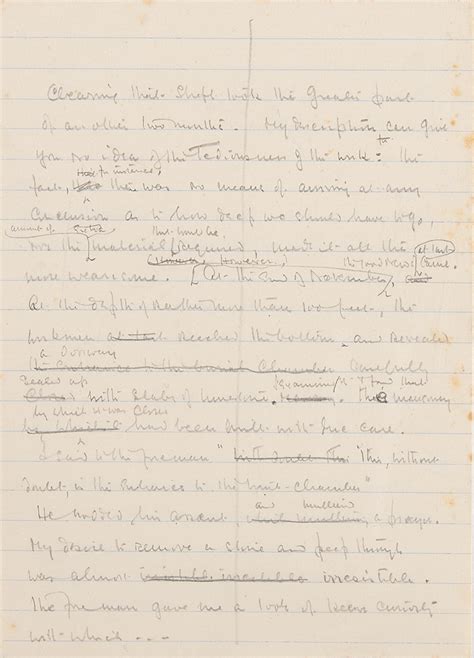 Clearing this shaft took the greater part
of another two months. My description can give
to
you no idea of the Tediousness of the work: the
for instance,
fact, that there was no means of arriving at any
conclusion as to how deep we should have to go,
amount of that would be
nor the material required, made it all the
however, the good news at last
more wearisome. [At the end of November, came.
At the depth of rather more than 100 feet, the
workmen at last reached the bottom and revealed
a doorway
the entrance to the burial chamber carefully
sealed up Examining it I found that
closed with slabs of limestone. The masonry
by which it was closed
by which it had been built with fine care.
I said to the foreman " "this, without
doubt, is the entrance to the burial-chamber"
and
He nodded his assent a prayer.
My desire to remove a stone and peep through
was almost irresistible.
The foreman gave me a look of keen curiosity
with which - - -